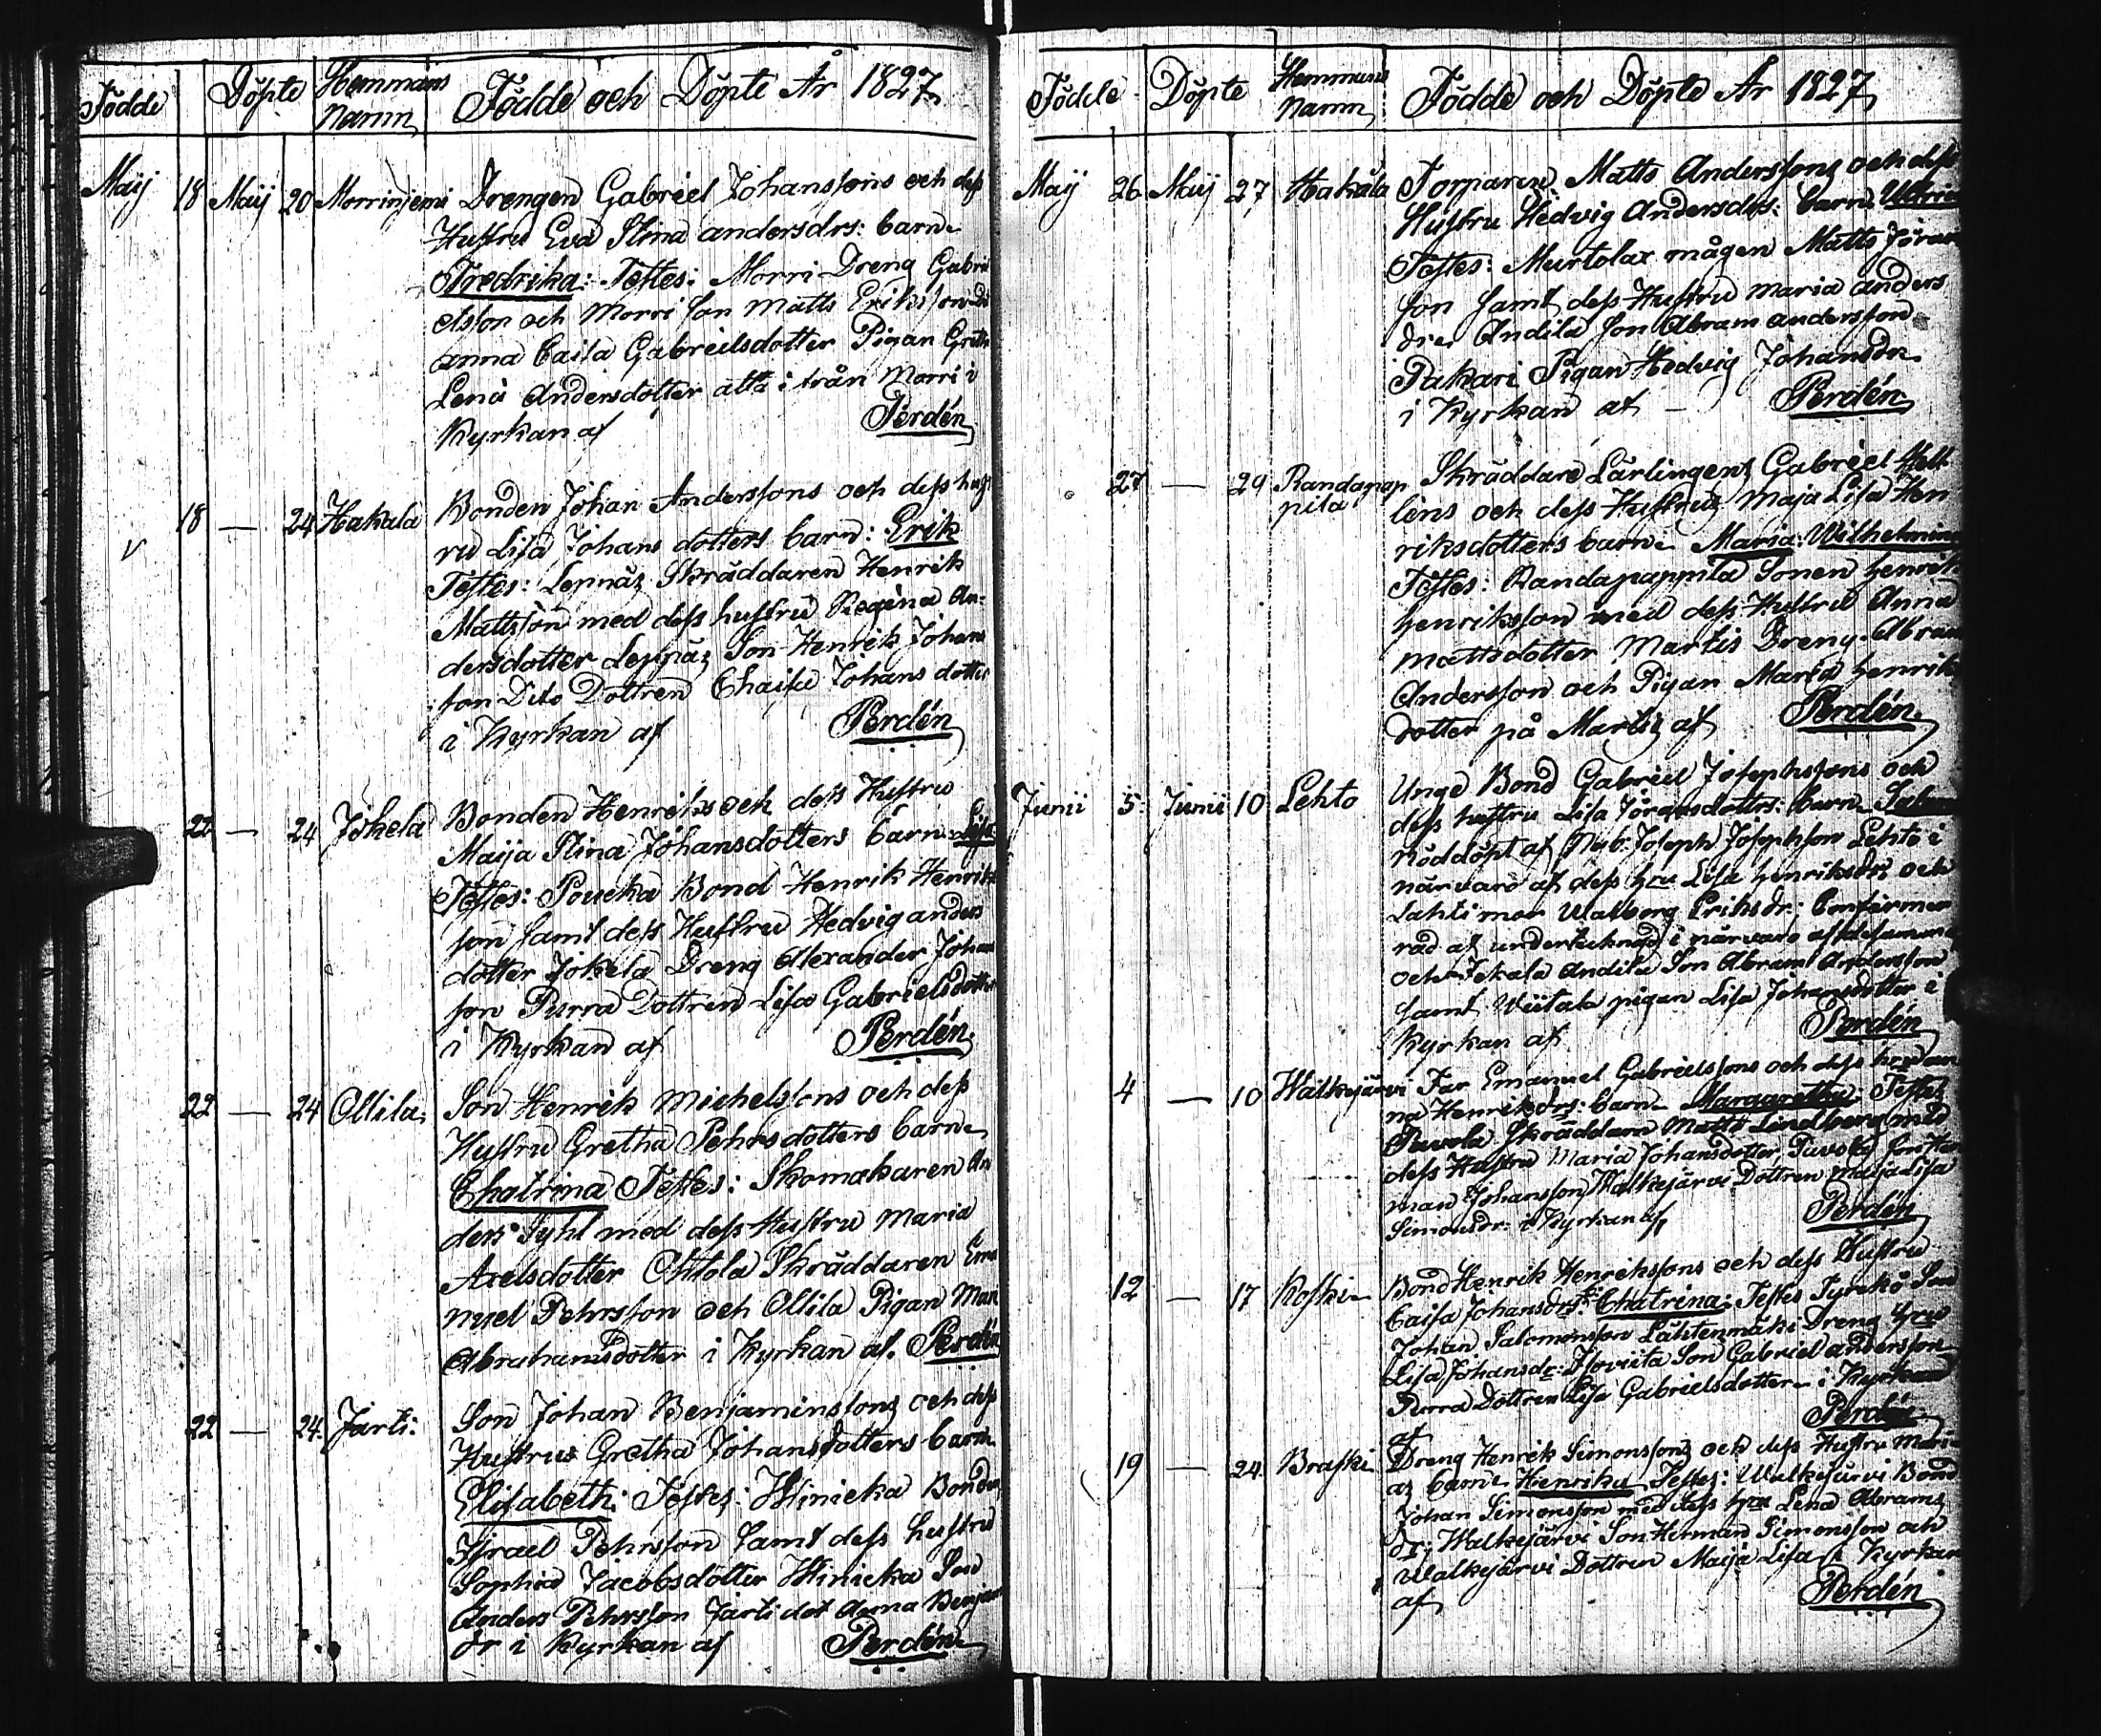 Födde Döpte Hemmans Namn Födde och Döpte År 1827
Maij 18 Maij 20 Morrinjemi Drengen Gabriel Johanssons och dess
Hustru Eva Stina andersdrs: barn
Fredrika: Testes: Morri Dreng Gabri
elsson och Morri Son Matts Eriksson
anna Caisa Gabrielsdotter Pigan Greth
Lena Andersdotter alla i från Morri i
Kyrkan af Perdén
18 — 24 Hakala Bonden Johan Anderssons och dess hust
ru Lisa Johans dotters barn: Erik
Testes: Leppäs Skräddaren Henrik
Mattsson med dess hustru Regina An-
dersdotter Leppäs Son Henrik Johans
son Dito Dottren Chaisa Johans dotter
i Kyrkan af Perdén
22 — 24 Jokela Bonden Henriks och dess Hustru
Maija Stina Johansdotters barn Lisa
Testes: Poucka Bond Henrik Henriks
son samt dess Hustru Hedvig anders
dotter Jokela Dreng Alexander Johans
son Purra Dottren Lisa Gabrielsdotter
i Kyrkan af Perdén
22 — 24 Ollila Son Henrik Michelssons och dess
Hustru Gretha Pehrsdotters barn
Chatrina Testes: Skomakaren An
ders Syhl med dess Hustru Maria
Axelsdotter Ohtola Skräddaren Ema
nuel Pehrsson och Ollila Pigan Mari
Abrahamsdotter i Kyrkan af. Perdén
22 — 24. Jarti: Son Johan Benjaminssons och dess
Hustrus Gretha Johansdotters barn
Elisabeth: Testes: Hinicka Bonden
Israel Pehrsson samt dess hustru
Sophia Jacobsdotter Hinicka Son
Anders Pehrsson Jarti dot Anna Benjam
dr i Kyrkan af Perdén
Födde Döpte Hemmans Namn Födde och Döpte År 1827
Maij 26 Maij 27 Hakala Torparen Matts Anderssons och dess
Hustru Hedvig Andersdrs: barn Ulrica
Testes: Murtolax mågen Matts Jöran
son samt dess Hustru Maria anders
dr. Andila Son Abram andersson
Pakari Pigan Hedvig Johansdr
i Kyrkan af — Perdén
27 — 29 Randapap pila Skräddare Lärlingens Gabriel Hell
lens och dess Hustrus Maja Lisa Hen
riksdotters barn Maria: Wilhelmina
Testes: Randapappila Sonen henrik
henriksson med dess Hustru Anna
Mattsdotter Martis Dreng Abram
Andersson och Pigan Maria henriks
dotter på Martis af Perdén
Junii 5 Junii 10 Lehto Unge Bond Gabriel Josephssons och
dess hustru Lisa Jöransdotters: barn
Nöddöpt af Nub. Joseph Josephson Lehto i
närvaro af dess hru Lisa henriksdr och
Lahti mor Walborg Eriksdr: Confirme
rad af undertecknad i närvaro af desamma
och Jekala Andila Son Abram Andersson
samt Wiitala pigan Lisa Johansdotter i
Kyrkan af Perdén
4 — 10 Walkejärvi Far Emanuel Gabrielssons och dess hru an
na Henriksdrs: barn Margaretha: Testes
Pavola Skräddarn Matts Lindberg med
dess Hustru Maria Johansdotter Pavola Son Her
man Johansson Walkejärvi Dottren Maija Lisa
Simonsdr: i Kyrkan af Perdén
12 — 17 Koski Bond Henrik Henrikssons och dess Hustru
Caisa Johansdrs Chatrina: Testes Tyrckö Son
Johan Salomonsson Lähtenmäki Dreng hru
Lisa Johansdr: Isoviita Son Gabriel andersson
Purra Dottren Lisa Gabrielsdotter i Kyrkan
af Perdén
19 — 24. Braski Dreng Henrik Simonssons och dess Hustru Mari
as barn Henrika Testes: Walkejärvi Bond
Johan Simonsson med dess hru Lena Abrams
dr: Walkejärvi Son Herman Simonsson och
Walkejärvi Dottren Maija Lisa i Kyrkan
af Perdén